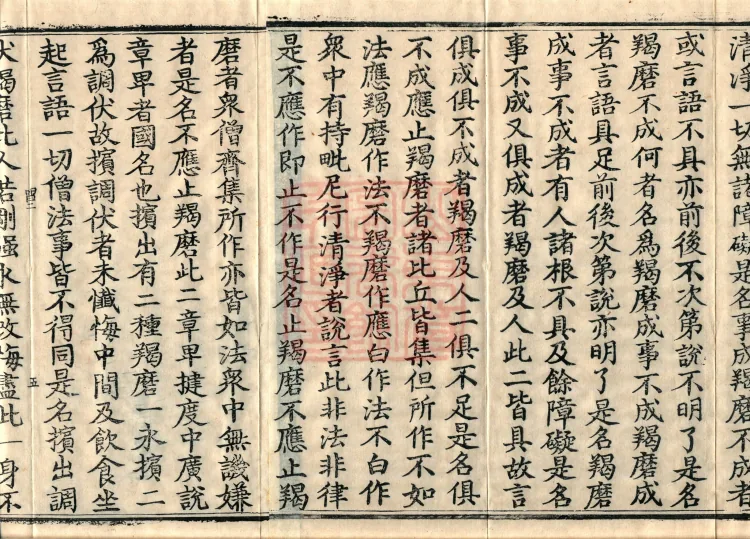 清淨一切無諸障礙是名事成羯磨不成者
或言語不具亦前後不次第說不明了是名
羯磨不成何者名為羯磨成事不成羯磨成
者言語具足前後次第說亦明了是名羯磨
成事不成者有人諸根不具及餘障礙是名
事不成又俱成者羯磨及人此二皆具故言
俱成俱不成者羯磨及人二俱不足是名俱
不成應止羯磨者諸比丘皆集但所作不如
法應羯磨作法不羯磨作應白作法不白作
衆中有持毗尼行清淨者說言此非法非律
是不應作即止不作是名止羯磨不應止羯
磨者衆僧齊集所作亦皆如法衆中無譏嫌
者是名不應止羯磨此二章卑揵度中廣說
章卑者國名也擯出有二種羯磨一永擯二
為調伏故擯調伏者未懺悔中間及飲食坐
起言語一切僧法事皆不得同是名擯出調
伏羯磨此人若剛强永無改悔盡此一身不
五